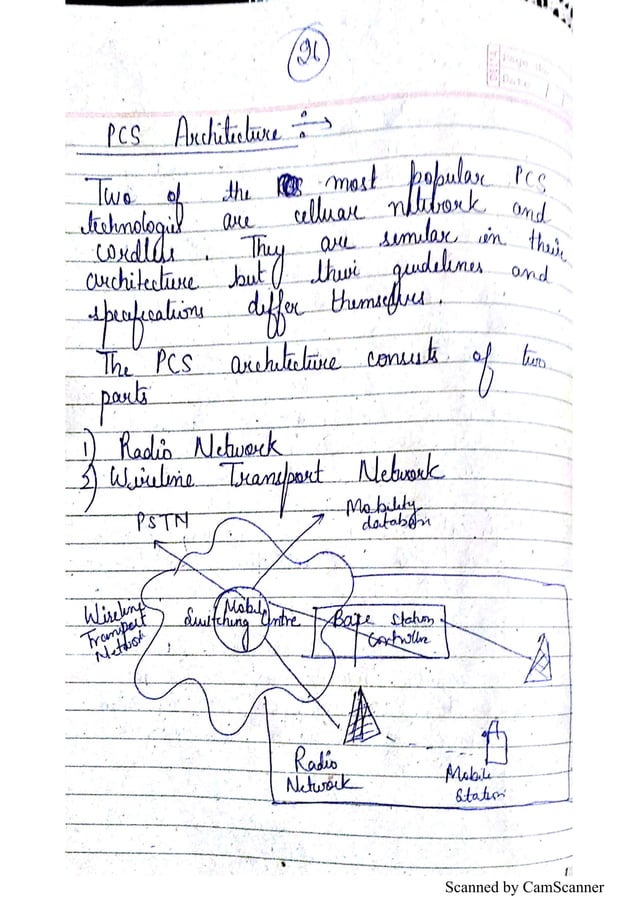 26
Page No.
Date
PCS Architecture ÷→
Two of the most popular PCS
technologies are celluar network and
cordless. They are semilar in their
architecture but their guidelines and
specifications differ themselves.
The PCS architecture consists of two
parts
1) Radio Network
2) Wireline Transport Network
PSTN
Mobility
database
Wireline
Transport
Network
Mobile
Switching Centre
Base Station
Controller
Radio
Network
Mobile
Station
Scanned by CamScanner